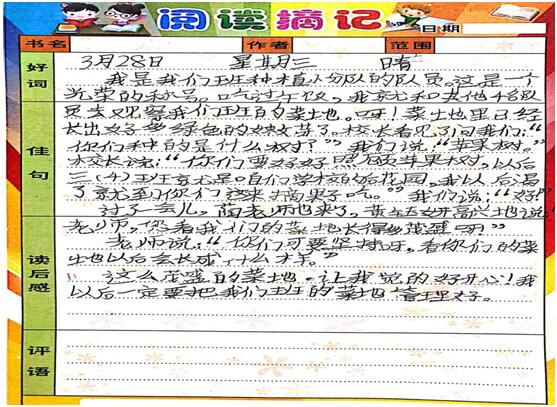 阅读摘记
日期
书名 作者 范围
好词
佳句
读后感
评语
3月28日 星期三 晴
我是我们班种植小分队的队员。这是一个
光荣的称号。吃过午饭,我就和其他4名队
员去观察我们班的菜地。呀!菜地里已经
长出好多绿色的嫩芽了。校长看见了问我们:“
你们种的是什么树?”我们说:“苹果树。”
校长说:“你们要好好照顾苹果树,以后
三(4)班就是咱们学校的后花园,我以后渴
了就到你们这来摘果子吃。”我们说:“好!”
过了一会儿,老师也来了,黄妍高兴地说
老师,您看我们的菜地长得多茂盛呀”
老师说:“你们可要坚持呀,看你们的菜
地以后会长成什么样。”
这么茂盛的菜地,让我觉的好开心!我
以后一定要把我们班的菜地管理好。